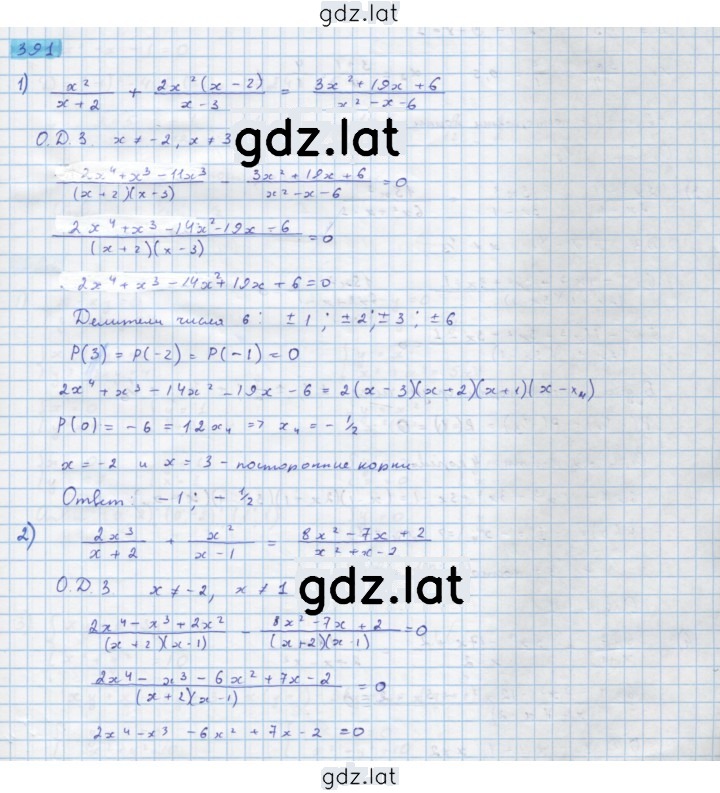 gdz.lat
391
1) x²/(x + 2) + 2x²(x - 2)/(x - 3) = (3x² + 19x + 6)/(x² - x - 6)
О.Д.З. x ≠ -2, x ≠ 3
gdz.lat
(2x⁴ + x³ - 11x³)/((x + 2)(x - 3)) - (3x² + 19x + 6)/(x² - x - 6) = 0
(2x⁴ + x³ - 14x² - 19x - 6)/((x + 2)(x - 3)) = 0
2x⁴ + x³ - 14x² + 19x + 6 = 0
Делители числа 6: ±1; ±2; ±3; ±6
P(3) = P(-2) = P(-1) = 0
2x⁴ + x³ - 14x² - 19x - 6 = 2(x - 3)(x + 2)(x + 1)(x - x₄)
P(0) = -6 = 12x₄ => x₄ = - 1/2
x = -2 и x = 3 - посторонние корни
Ответ: -1; - 1/2
2) 2x³/(x + 2) + x²/(x - 1) = (8x² - 7x + 2)/(x² + x - 2)
О.Д.З. x ≠ -2, x ≠ 1
gdz.lat
(2x⁴ - x³ + 2x²)/((x + 2)(x - 1)) - (8x² - 7x + 2)/((x + 2)(x - 1)) = 0
(2x⁴ - x³ - 6x² + 7x - 2)/((x + 2)(x - 1)) = 0
2x⁴ - x³ - 6x² + 7x - 2 = 0
gdz.lat